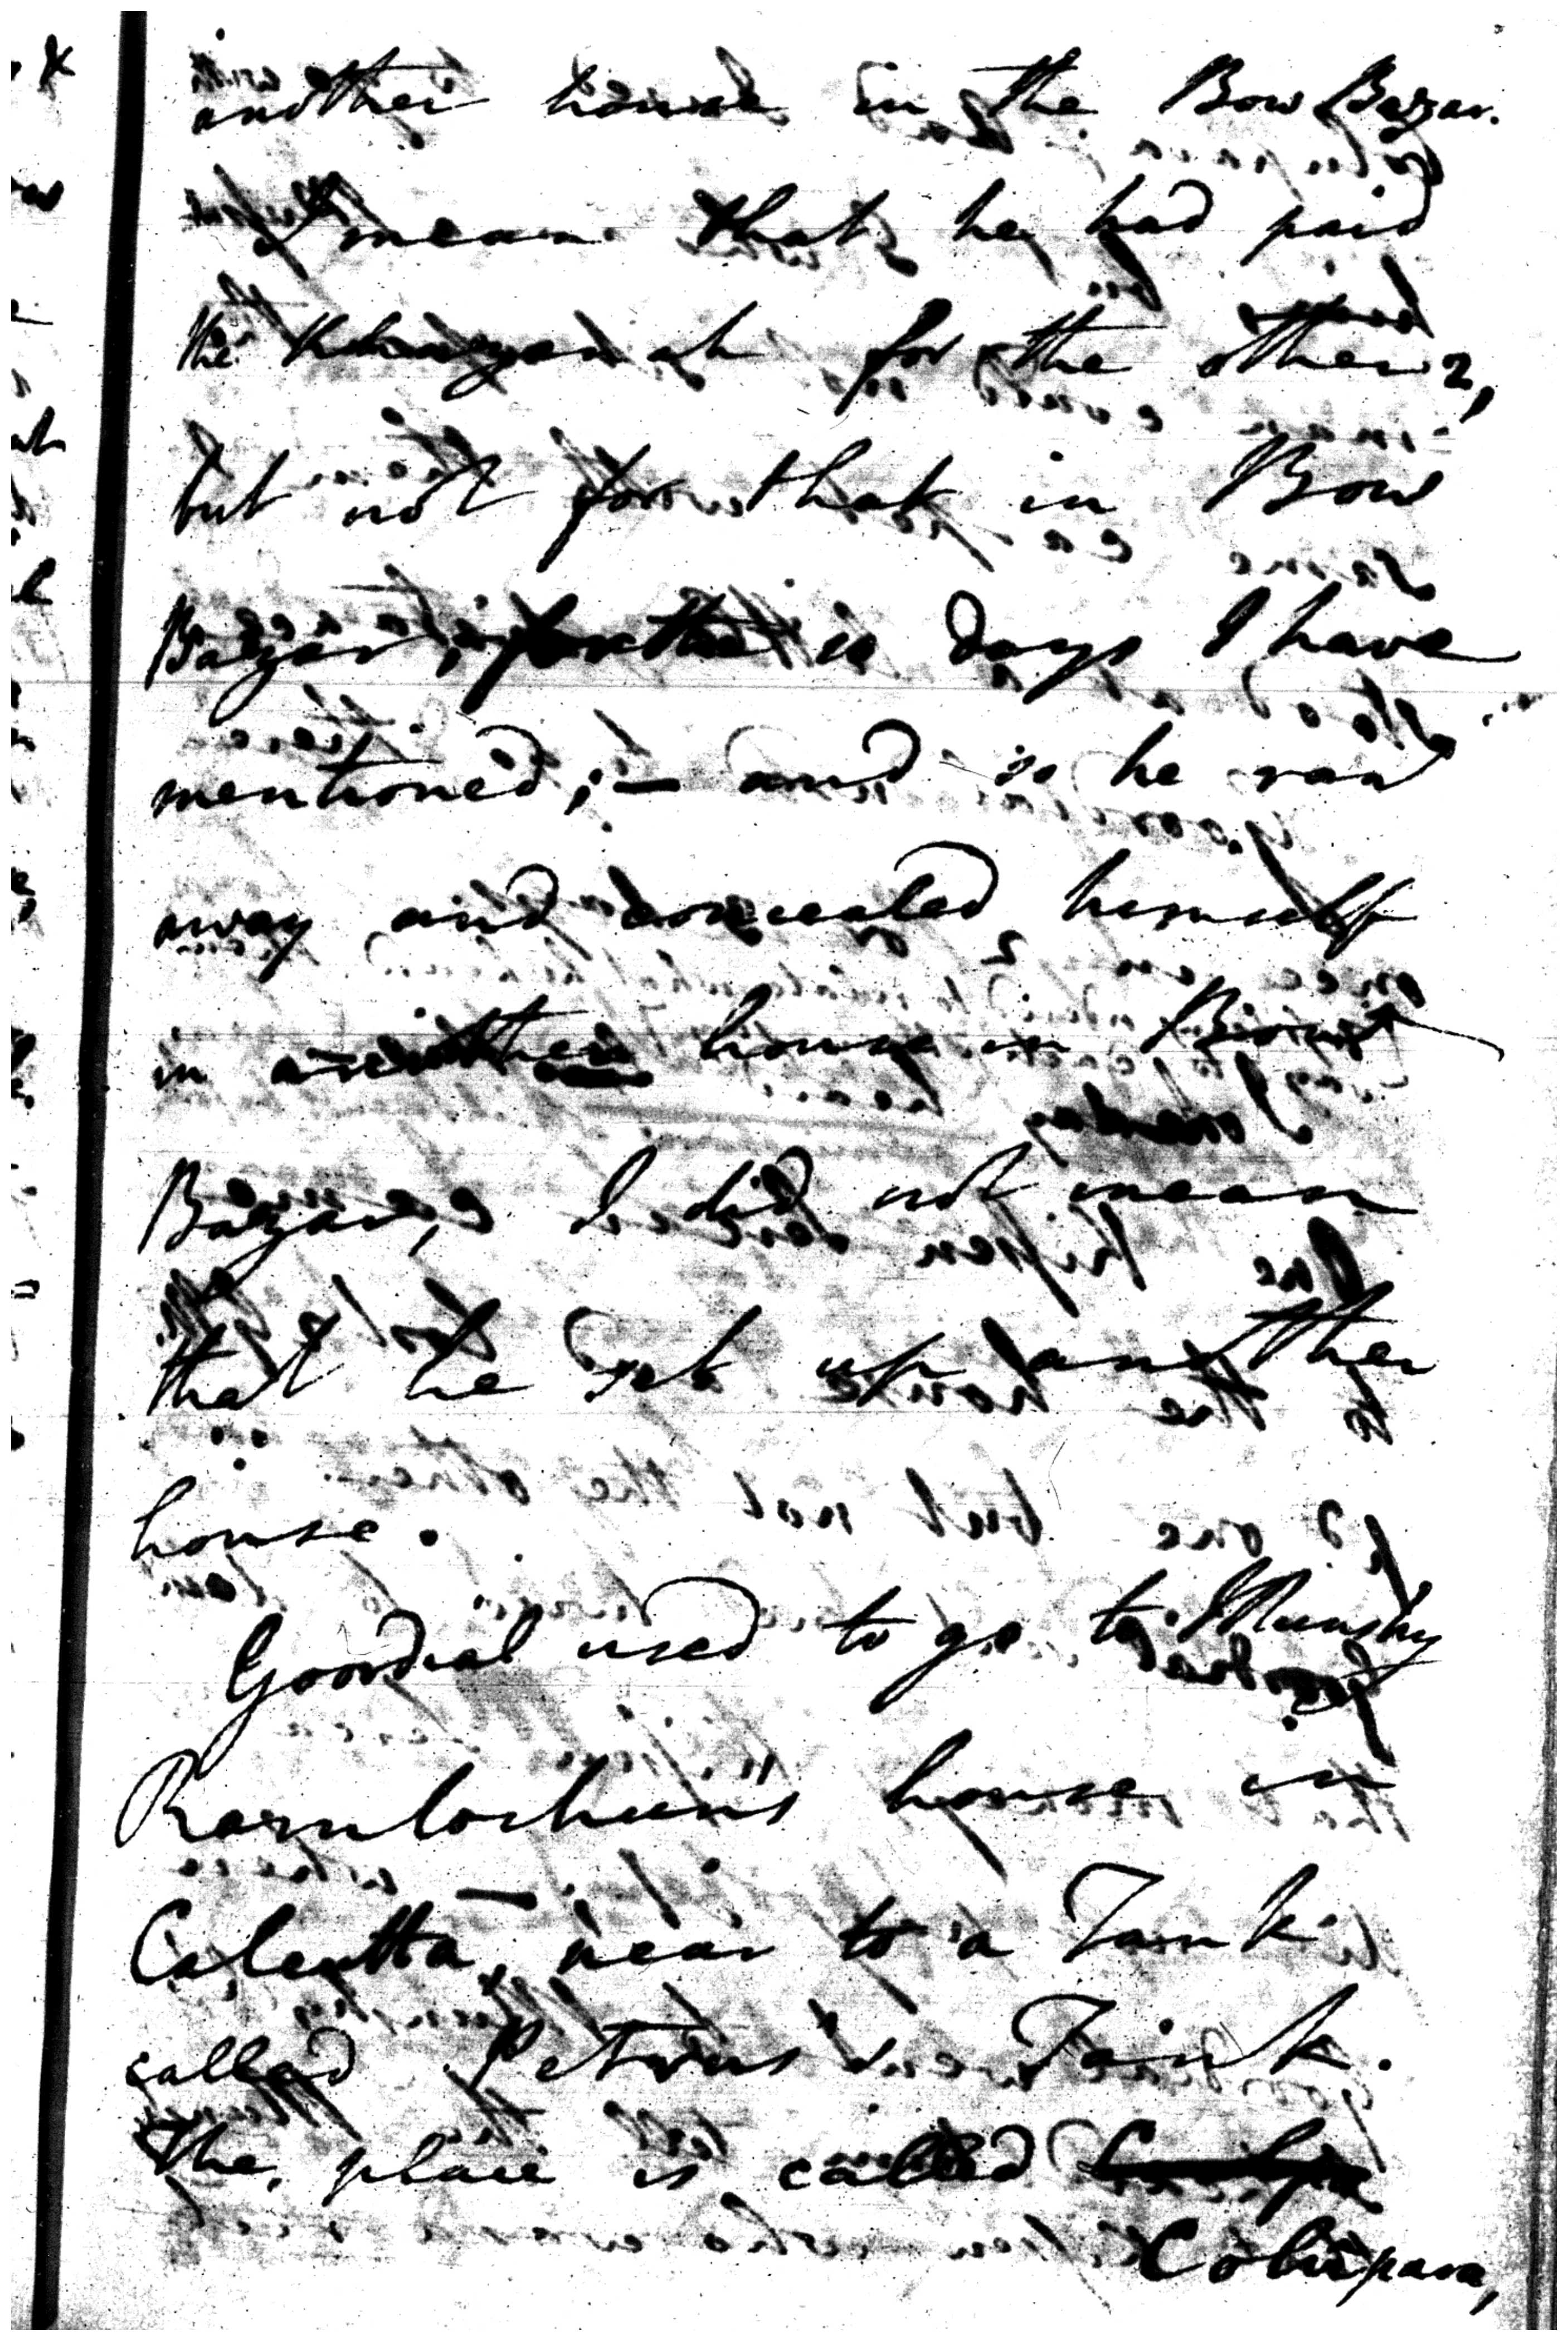 another house in the Bow Bazar.
I mean that he had paid
the Khazanah for the other 2,
but not for that in Bow
Bazar, for the 12 days I have
mentioned; — and so he ran
away and concealed himself
in another house in Bow
Bazar, I did not mean
that he set up another
house.
Goordial used to go to Munshy
Ramlochuns house in
Calcutta, near to a Tank
called Petrus' Tank.
The place is called
Colupara,